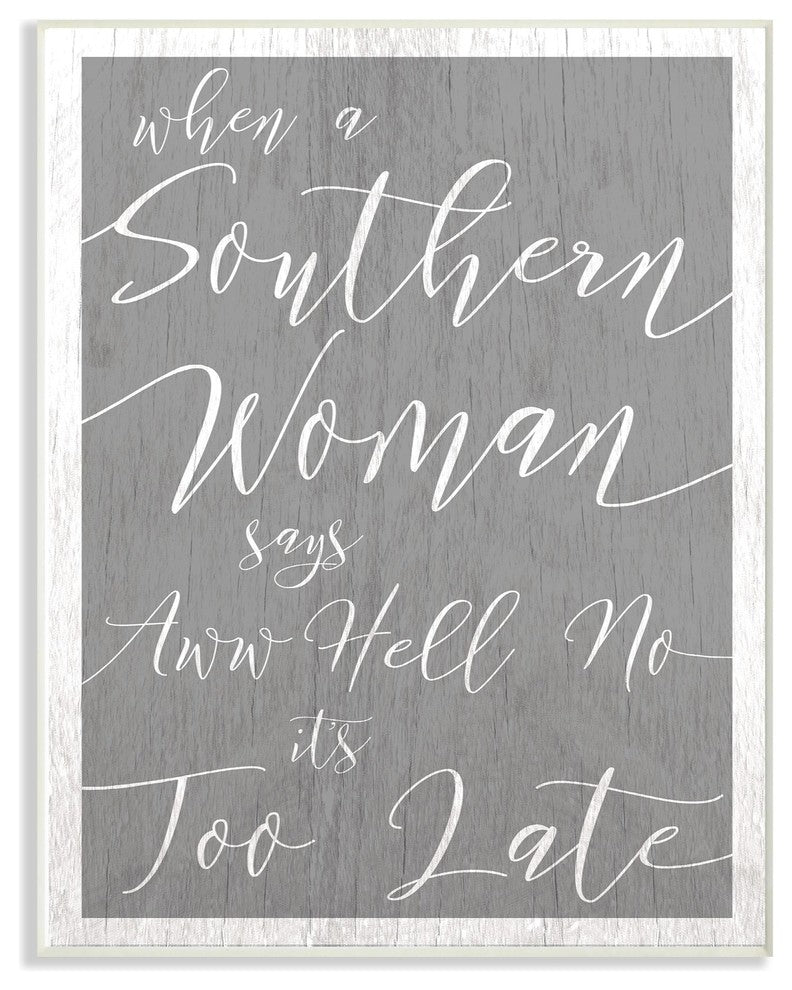 when a
Southern
Woman
says
Aww Hell No
it's
Too Late